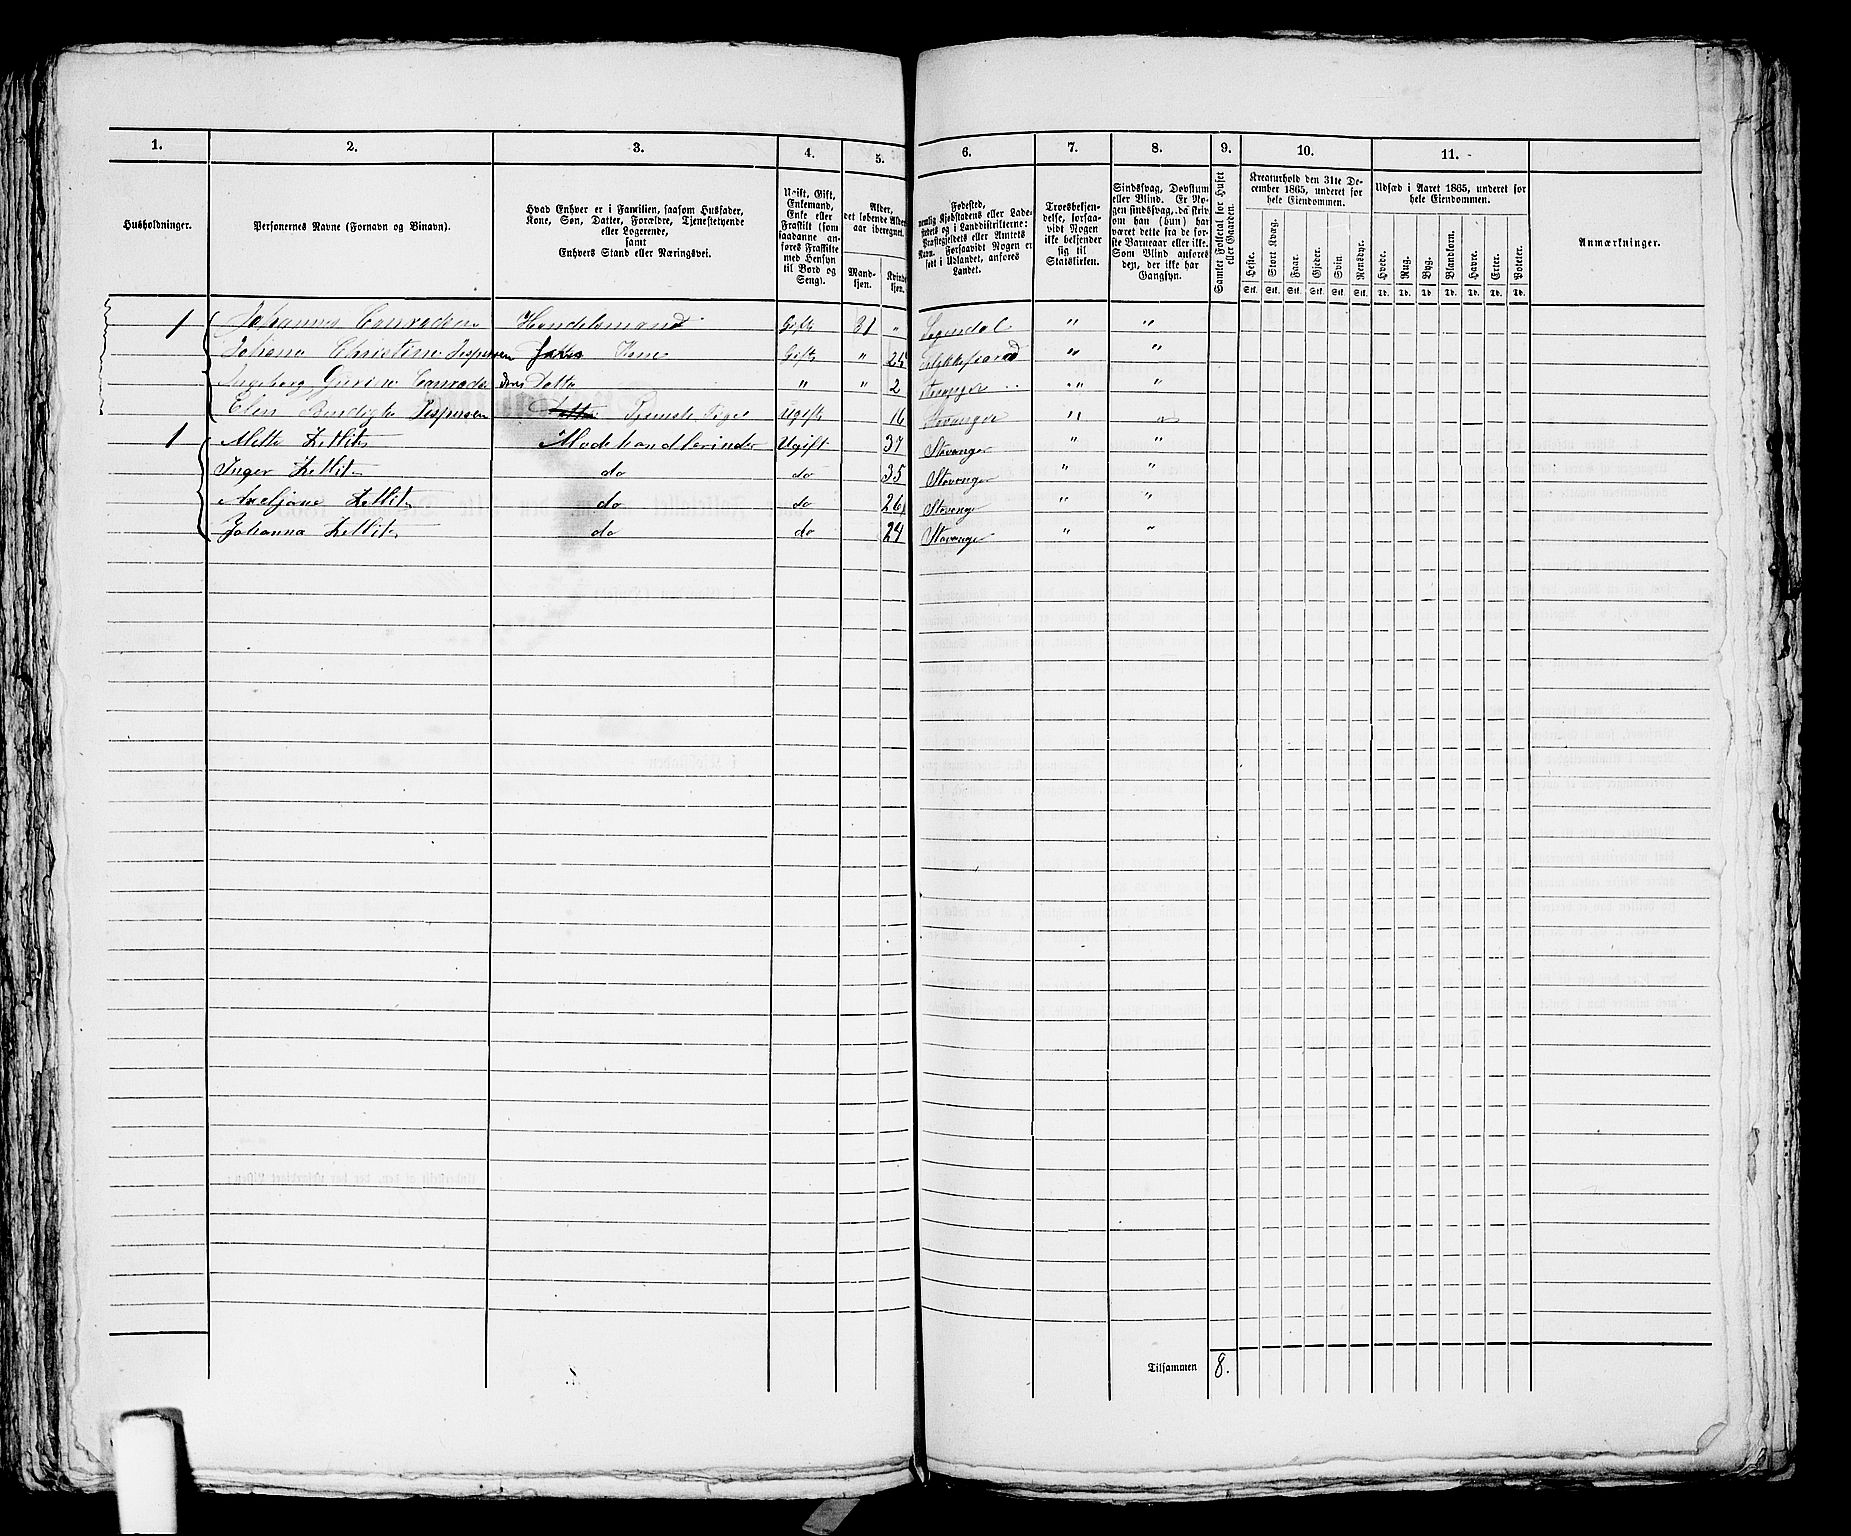 1. 2. 3. 4. 5. 6. 7. 8. 9. 10. 11.
Husholdninger.
Personernes Navne (Fornavn og Binavn).
Hvad Enhver er i Familien, saasom Husfader,
Kone, Søn, Datter, Forældre, Tjenestetyende
eller Logerende,
samt
Enhvers Stand eller Næringsvei.
Ugift, Gift,
Enkemand,
Enke eller
Fraskilt (som
saadanne an-
føres Fraskilte
med Hensyn
til Bord og
Seng).
Alder,
det løbende Alders-
aar iberegnet.
Mand-
kjøn.
Kvinde-
kjøn.
Fødested,
nemlig Kjøbstadens eller Lade-
stedets og i Landdistrikterne:
Præstegjeldets eller Amtets
Navn. Forsaavidt Nogen er
født i Udlandet, anføres
Landet.
Troesbekjen-
delse, forsaa-
vidt Nogen
ikke bekjender
sig til
Statskirken.
Sindssvag, Døvstum
eller Blind. Er No-
gen sindssvag, da skriv
om han (hun) har
været dette fra de før-
ste Barneaar eller ikke.
Som Blind anføres
den, der ikke har
Gangsyn.
Samlet Folketal for Huset
eller Gaarden.
Kreaturhold den 31te De-
cember 1865, underet for
hele Eiendommen.
Heste. Stort Kvæg. Faar. Gjeder. Svin. Rensdyr.
Stk. Stk. Stk. Stk. Stk. Stk.
Udsæd i Aaret 1865, underet for
hele Eiendommen.
Hvede. Rug. Byg. Blandkorn. Havre. Erter. Poteter.
Td. Td. Td. Td. Td. Td. Td.
Anmærkninger.
1 Johannes Conradsen Handelsmand Gift 31 " Sogndal " "
Johane Christine Jespersen Kone Gift " 25 " "
Ingeborg Gurine Conrads dres Datter " " 2 Stavanger " "
Elen Bendigte Jespersen Datter Tjeneste Pige Ugift 16 Stavanger " "
1 Mette Zetlitz Modehandlerinde Ugift 37 Stavanger " "
Inger Zetlitz do do 35 Stavanger " "
Axeljane Zetlitz do do 26 Stavanger " "
Johanna Zetlitz do do 24 Stavanger " "
Tilsammen 8.